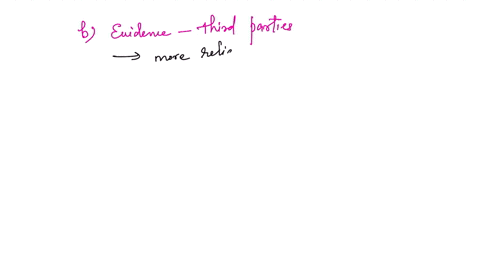 b) Evidence – third parties
→ more reli